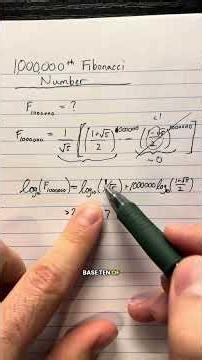 1,000,000th Fibonacci
Number
F1000000 = ?
<1
F1000000 = 1/√5 [ ((1+√5)/2)^1000000 - ((1-√5)/2)^1000000 ]
~0
log10(F1000000) = log10(1/√5) + 1000000 log10((1+√5)/2)
BASE TEN OF